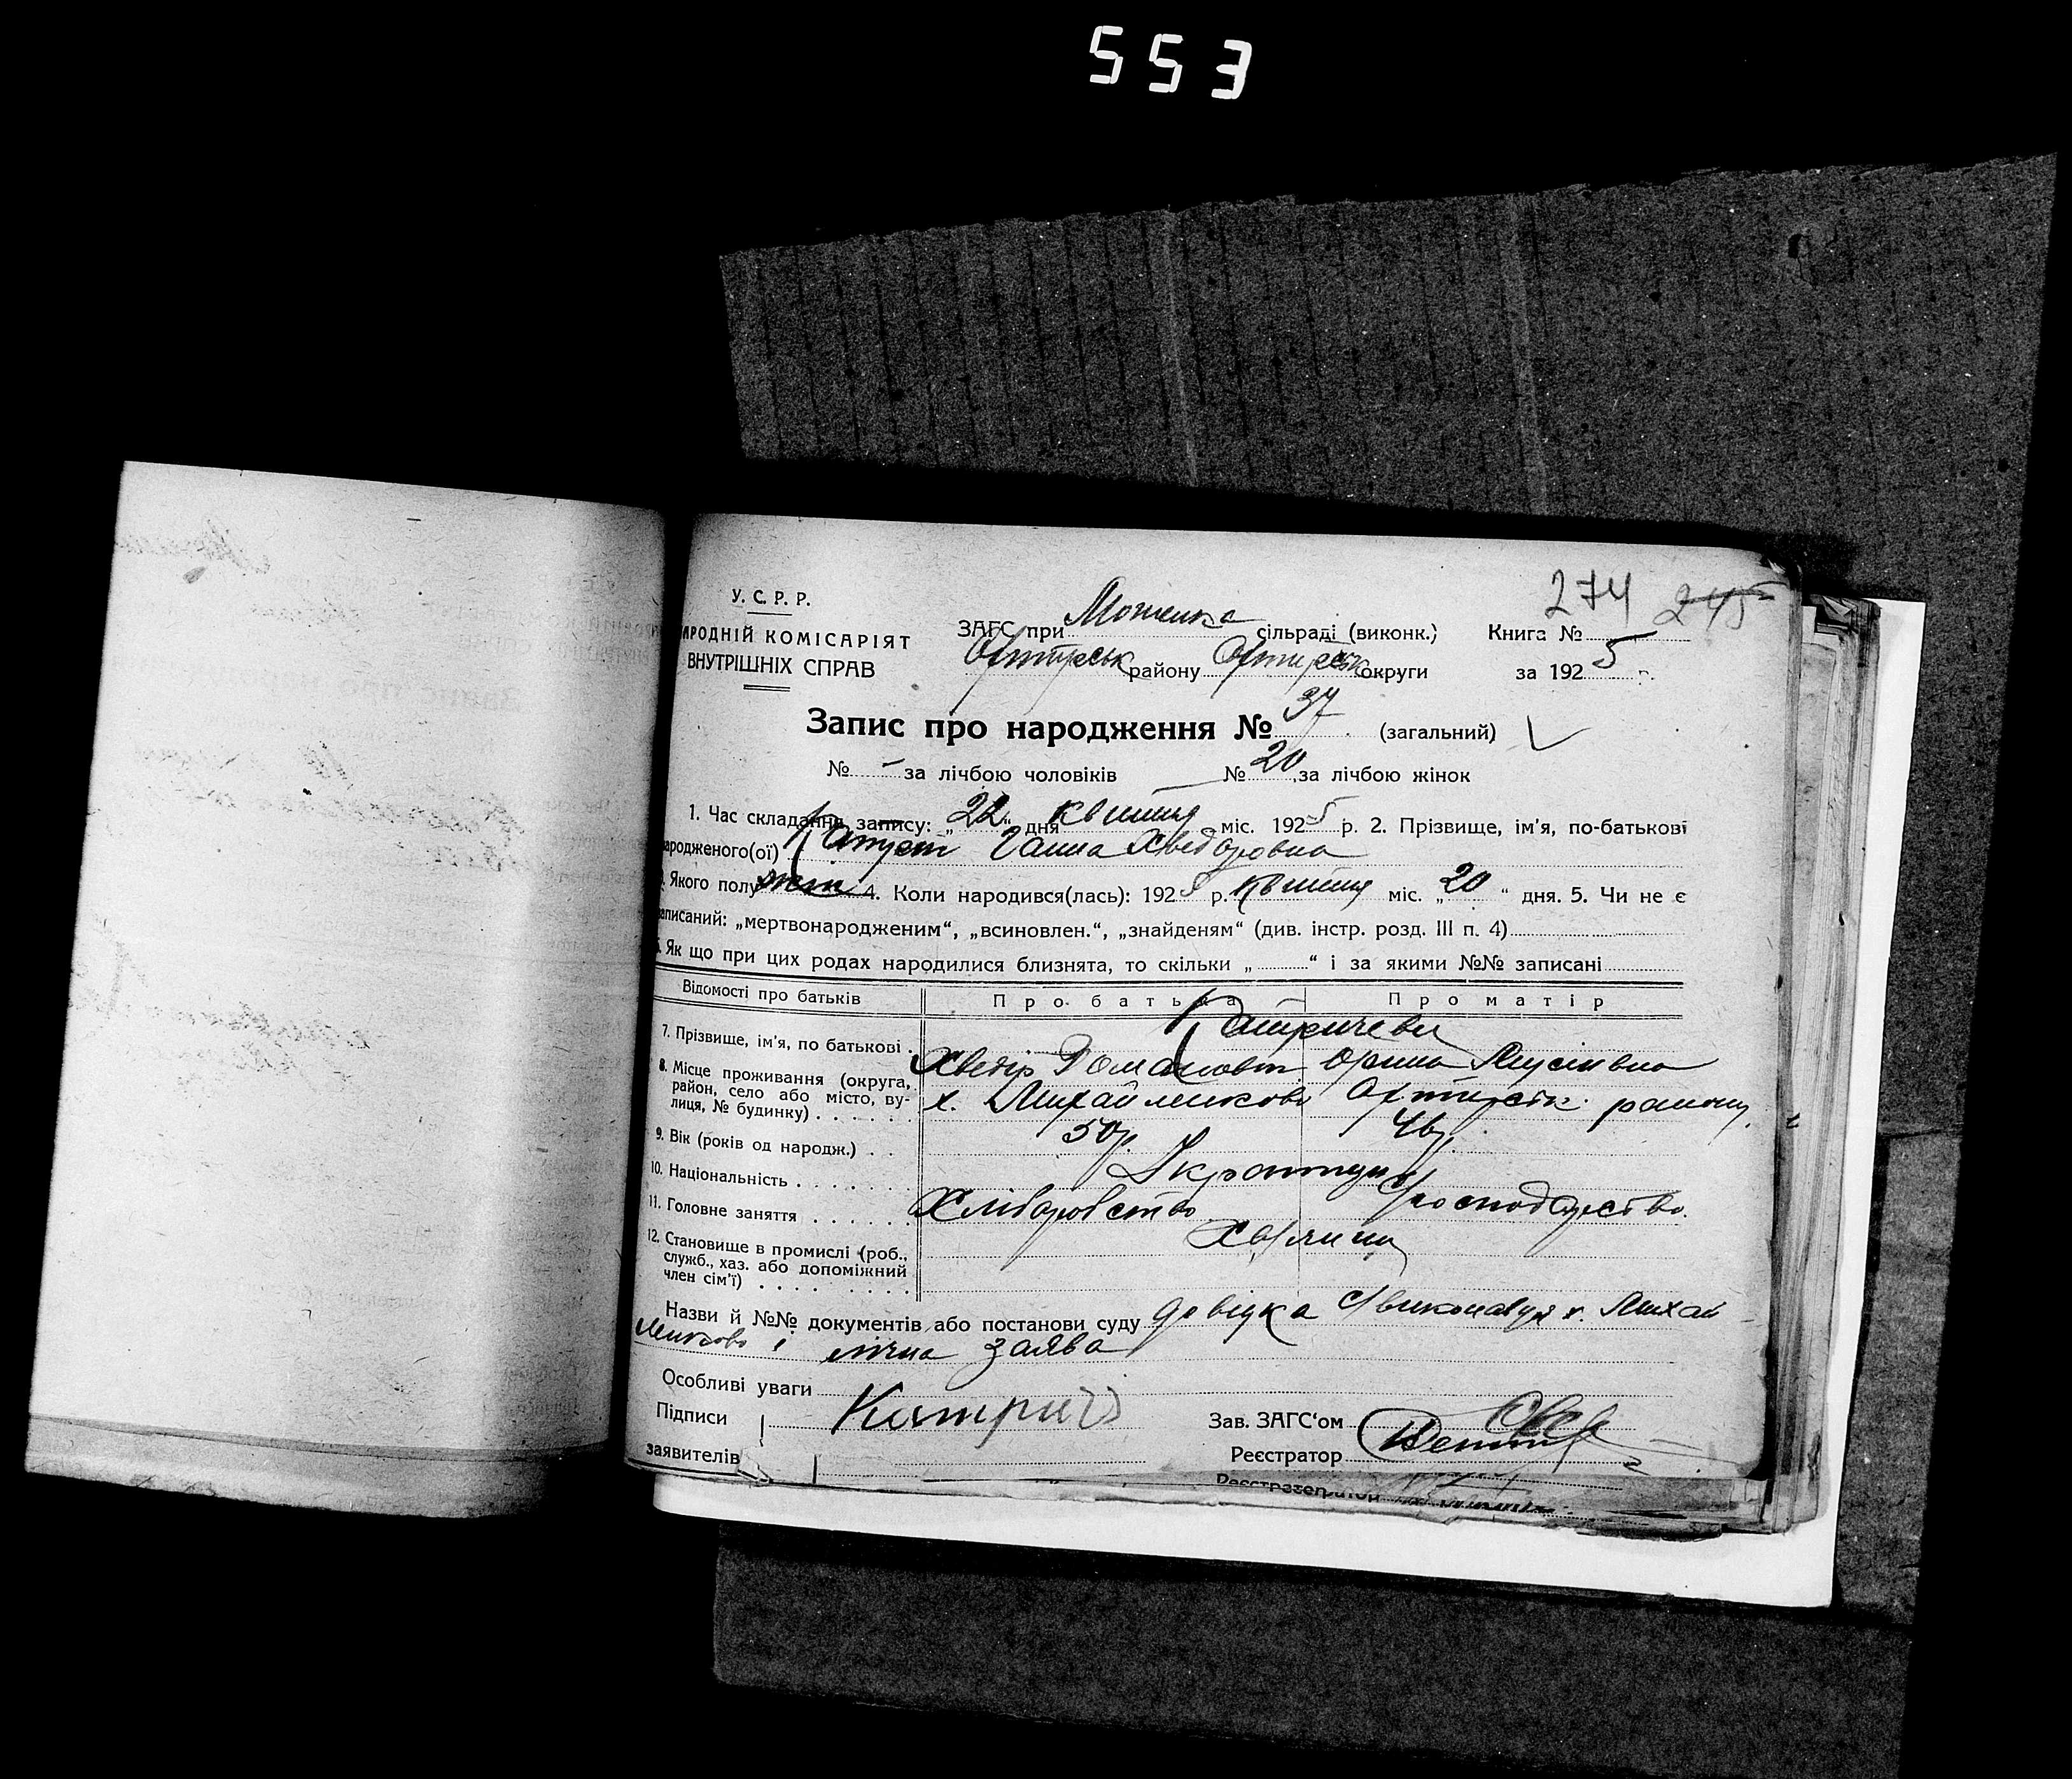 553
274 245
У. С. Р. Р.
АРОДНІЙ КОМІСАРІЯТ
ВНУТРІШНІХ СПРАВ
ЗАГС при сільраді (виконк.) Книга №
Охтирськ району Охтирськ округи за 1925 р.
Запис про народження № 37 (загальний)
№ - за лічбою чоловіків № 20 за лічбою жінок
1. Час складання запису: „22“ дня квітня міс. 1925 р. 2. Прізвище, ім'я, по-батькові
ародженого(ої) Ганна Хведоровна
. Якого полу жін 4. Коли народився(лась): 1925 р. квітня міс. „20“ дня. 5. Чи не є
записаний: „мертвонародженим“, „всиновлен.“, „знайденям“ (див. інстр. розд. III п. 4)
. Як що при цих родах народилися близнята, то скільки „ “ і за якими №№ записані
Відомості про батьків Про батька Про матір
7. Прізвище, ім'я, по батькові
Хведір Романович Орина
8. Місце проживання (округа, район, село або місто, вулиця, № будинку) х. Михайликово Охтирськ. району
9. Вік (років од народж.) 50р. 46р.
10. Національність
11. Головне заняття Хліборобство господарство.
12. Становище в промислі (роб., служб., хаз. або допоміжний член сім'ї)
Назви й №№ документів або постанови суду довідка х. Михай
ликово і лічна заява
Особливі уваги
Підписи Катрич
заявителів
Зав. ЗАГС'ом
Реєстратор